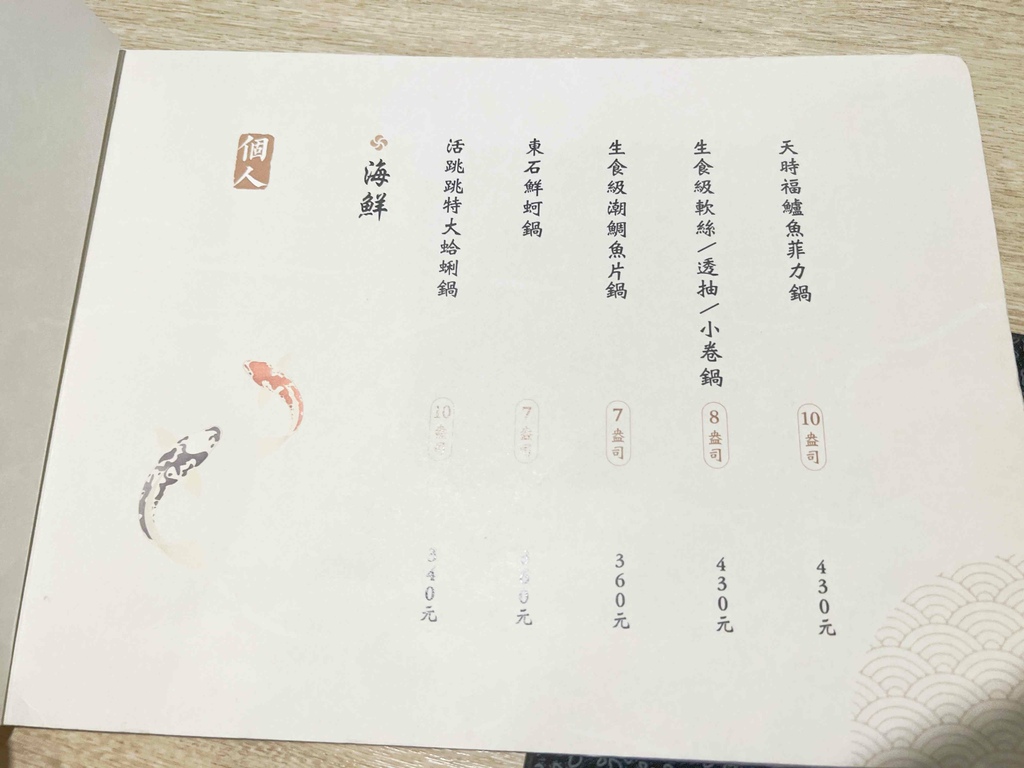 個人
海鮮
活跳跳特大蛤蜊鍋
10盎司
340元
東石鮮蚵鍋
7盎司
生食級潮鯛魚片鍋
7盎司
360元
生食級軟絲/透抽/小卷鍋
8盎司
430元
天時福鱸魚菲力鍋
10盎司
430元